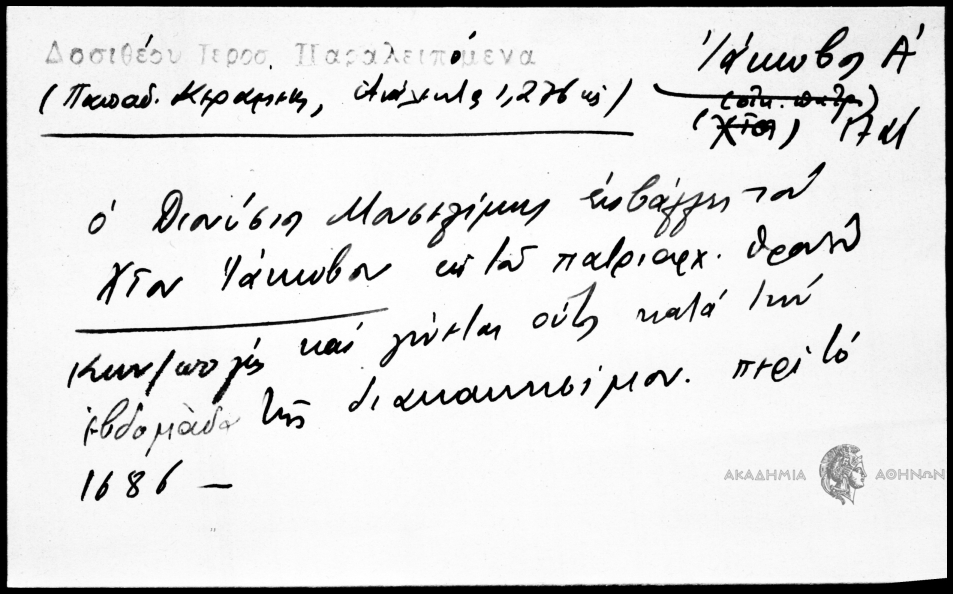 Δοσιθέου Ιεροσ. Παραλειπόμενα
(Παπαδ. Κεραμεύς, Ἀνάλεκτα 1,276 κς)
Ἰάκωβος Α΄
(οἰκ. πατρ.)
(Χῖος) 17 αἰ
ὁ Διονύσιος Μουσελίμης τὸν
Χῖον Ἰάκωβον εἰς τὸν πατριαρχ. θρόνον
Κων/πόλεως καὶ γίνεται οὗτος κατὰ τὴν
ἑβδομάδα τῆς διακαινησίμου. περὶ τὸ
1686 —
ΑΚΑΔΗΜΙΑ ΑΘΗΝΩΝ